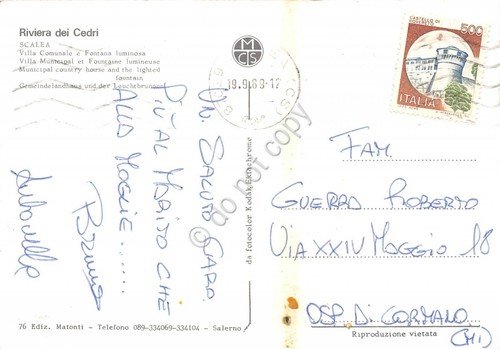 Riviera dei Cedri
SCALEA
Villa Comunale e Fontana luminosa
Villa Municipal et Fountaine lumineuse
Municipal country horse and the lighted
fountain
Gemeindelandhaus und der Leuchtbrunnen
MCS
19.9.89-17
CASTELLO DI
500
ITALIA
UN SALUTO CARO
PIÙ AL MARITO CHE
ALLA MOGLIE......
Bruna
Antonella
da fotocolor Kodak Ektachrome
© do not copy
FAM.
GUERRA ROBERTO
VIA XXIV MAGGIO 18
OSP. DI CORMANO
(MI)
76 Ediz. Matonti - Telefono 089-334069-334104 - Salerno
Riproduzione vietata